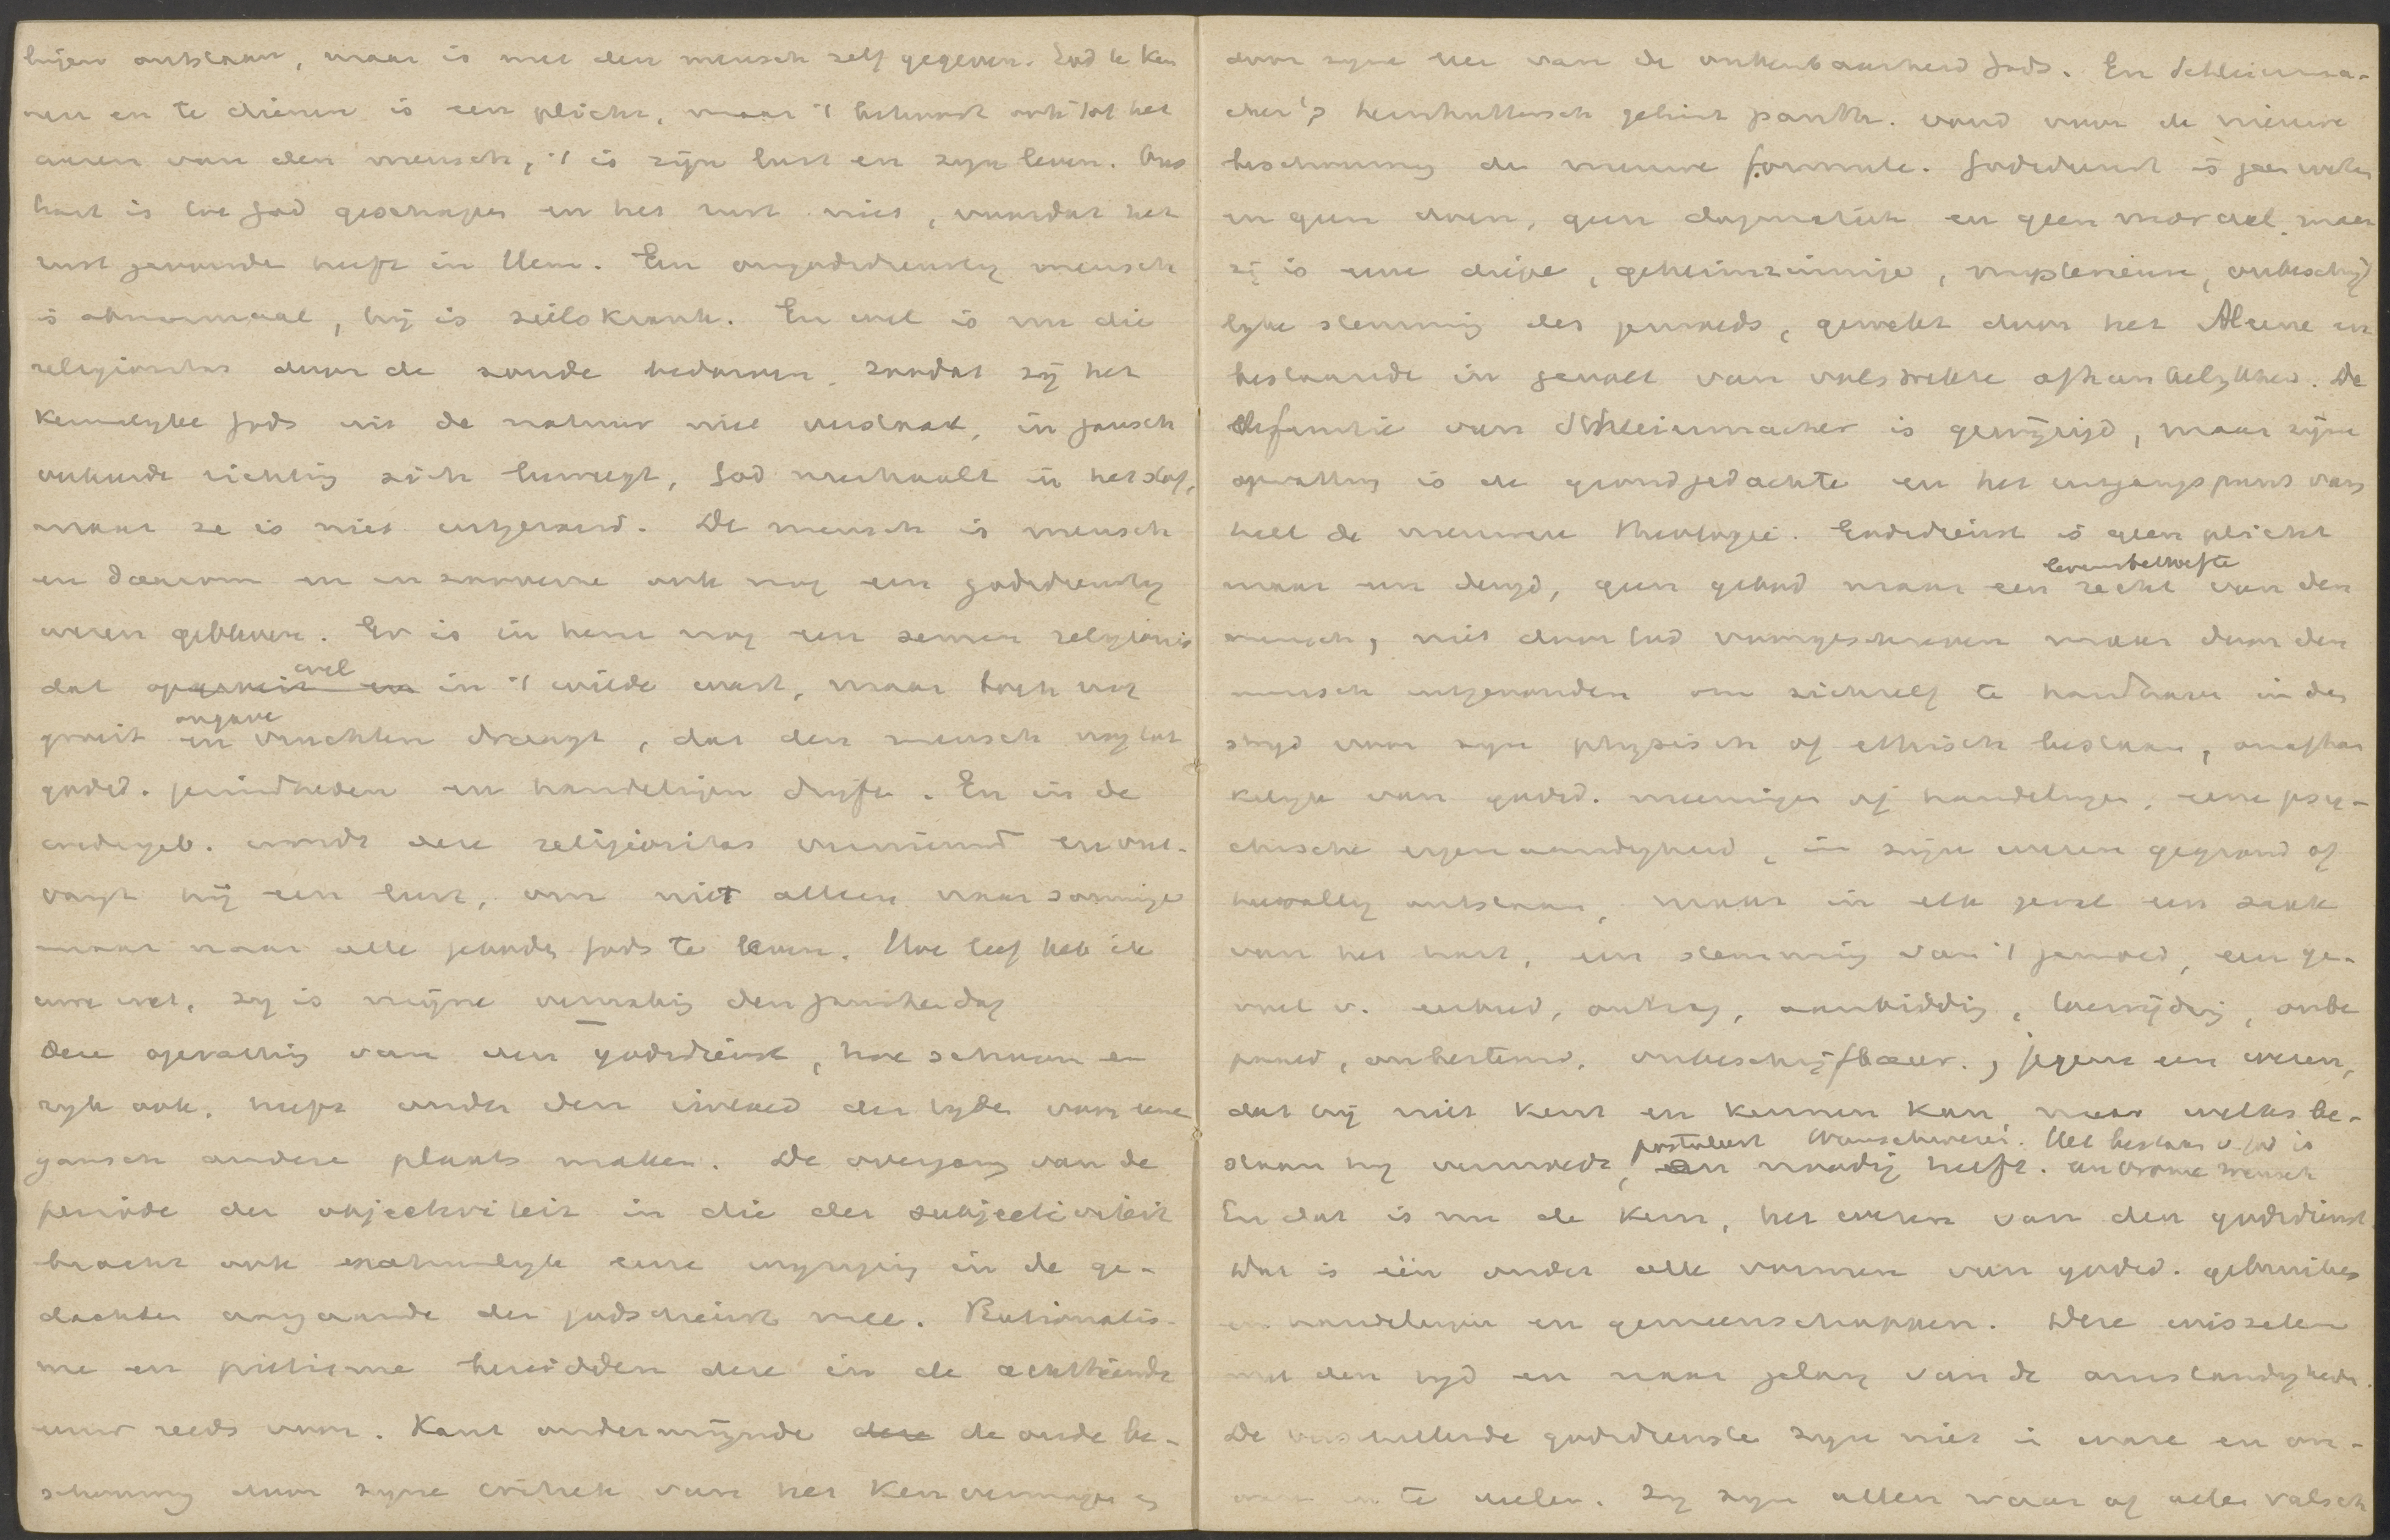 lijen ontstaan, maar is met den mensch zelf gegeven. God te ken
nen en te dienen is een plicht, maar 't behoort ook tot het
wezen van den mensch, 't is zijn lust en zyn leven. Ons
hart is tot God geschapen en het rust niet, voordat het
rust gevonden heeft in Hem. Een ongodsdienstig mensch
is abnormaal, hij is zielskrank. En wel is nu die
religiositas door de zonde bedorven, zoodat zij het
kennelyke Gods uit de natuur niet verstaat, in gansch
verkeerde richting zich beweegt, God neerhaalt in het stof,
maar ze is niet uitgeroeid. De mensch is mensch
en daarom en in zooverre ook nog een godsdienstig
wezen gebleven. Er is in hem nog een semen religionis
dat wel in 't wilde wast, maar toch nog
groeit en ongave vruchten draagt, dat den mensch nog tot
godsd. gezindheden en handelingen dryft. En in de
wedergeb. wordt deze religiositas vernieuwd en ont-
vangt hij een lust, om niet alleen naar sommige
maar naar alle geboden Gods te leven. Hoe lief heb ik
uwe wet, zy is mijne betrachting den ganschen dag
Deze opvatting van den godsdienst, hoe schoon en
ryk ook, heeft onder den invloed der tyden voor eene
gansch andere plaats maken. De overgang van de
periode der objectiviteit in die der subjectiviteit
bracht ook natuurlyk eene wyziging in de ge-
dachten aangaande den godsdienst mee. Rationalis-
me en pietisme bereidden deze in de achttiende
eeuw reeds voor. Kant ondermijnde deze de oude be-
schouwing door zyne critiek van het kenvermogen en
door zyne leer van de onkenbaarheid Gods. En Schleierma-
cher's herrnhuttersch getint panth. vond voor de nieuwe
beschouwing de nieuwe formule. Godsdienst is geen weten
en geen doen, geen dogmatiek en geen moraal, maar
zij is eene diepe, geheimzinnige, mysterieuse, onbeschrijf
lyke stemming des gemoeds, gewekt door het Al eene en
bestaande in gevoel van volstrekte afhankelykheid. De
definitie van Schleiermacher is gewijzigd, maar zijne
opvatting is de grondgedachte en het uitgangspunt van
heel de nieuwere theologie. Godsdienst is geen plicht
maar een deugd, geen gebod maar een recht levensbehoefte van den
mensch, niet door God voorgeschreven maar door den
mensch uitgevonden om zichzelf te handhaven in den
stryd voor zyn physisch of ethisch bestaan, onafhan
kelyk van godsd. meeningen of handelingen, eene psy-
chische eigenaardigheid, in zijn wezen gegrond of
toevallig ontstaan, maar in elk geval een zaak
van het hart, een stemming van 't gemoed, een ge-
voel v. eerbied, ontzag, aanbidding, toewijding, onbe
paald, onbestemd, onbeschrijfbaar, jegens een wezen,
dat hij niet kent en kennen kan, maar welks be-
staan hij vermoedt, postuleert en noodig heeft. Wunschwesen. Het bestaan v. God is een vrome wensch
En dat is nu de kern, het wezen van den godsdienst
Dat is één onder alle vormen van godsd. gebruiken
en handelingen en gemeenschappen. Deze wisselen
met den tyd en naar gelang van de omstandigheden.
De verschillende godsdiensten zyn niet in ware en on-
ware in te deelen. Zy zyn allen waar of allen valsch